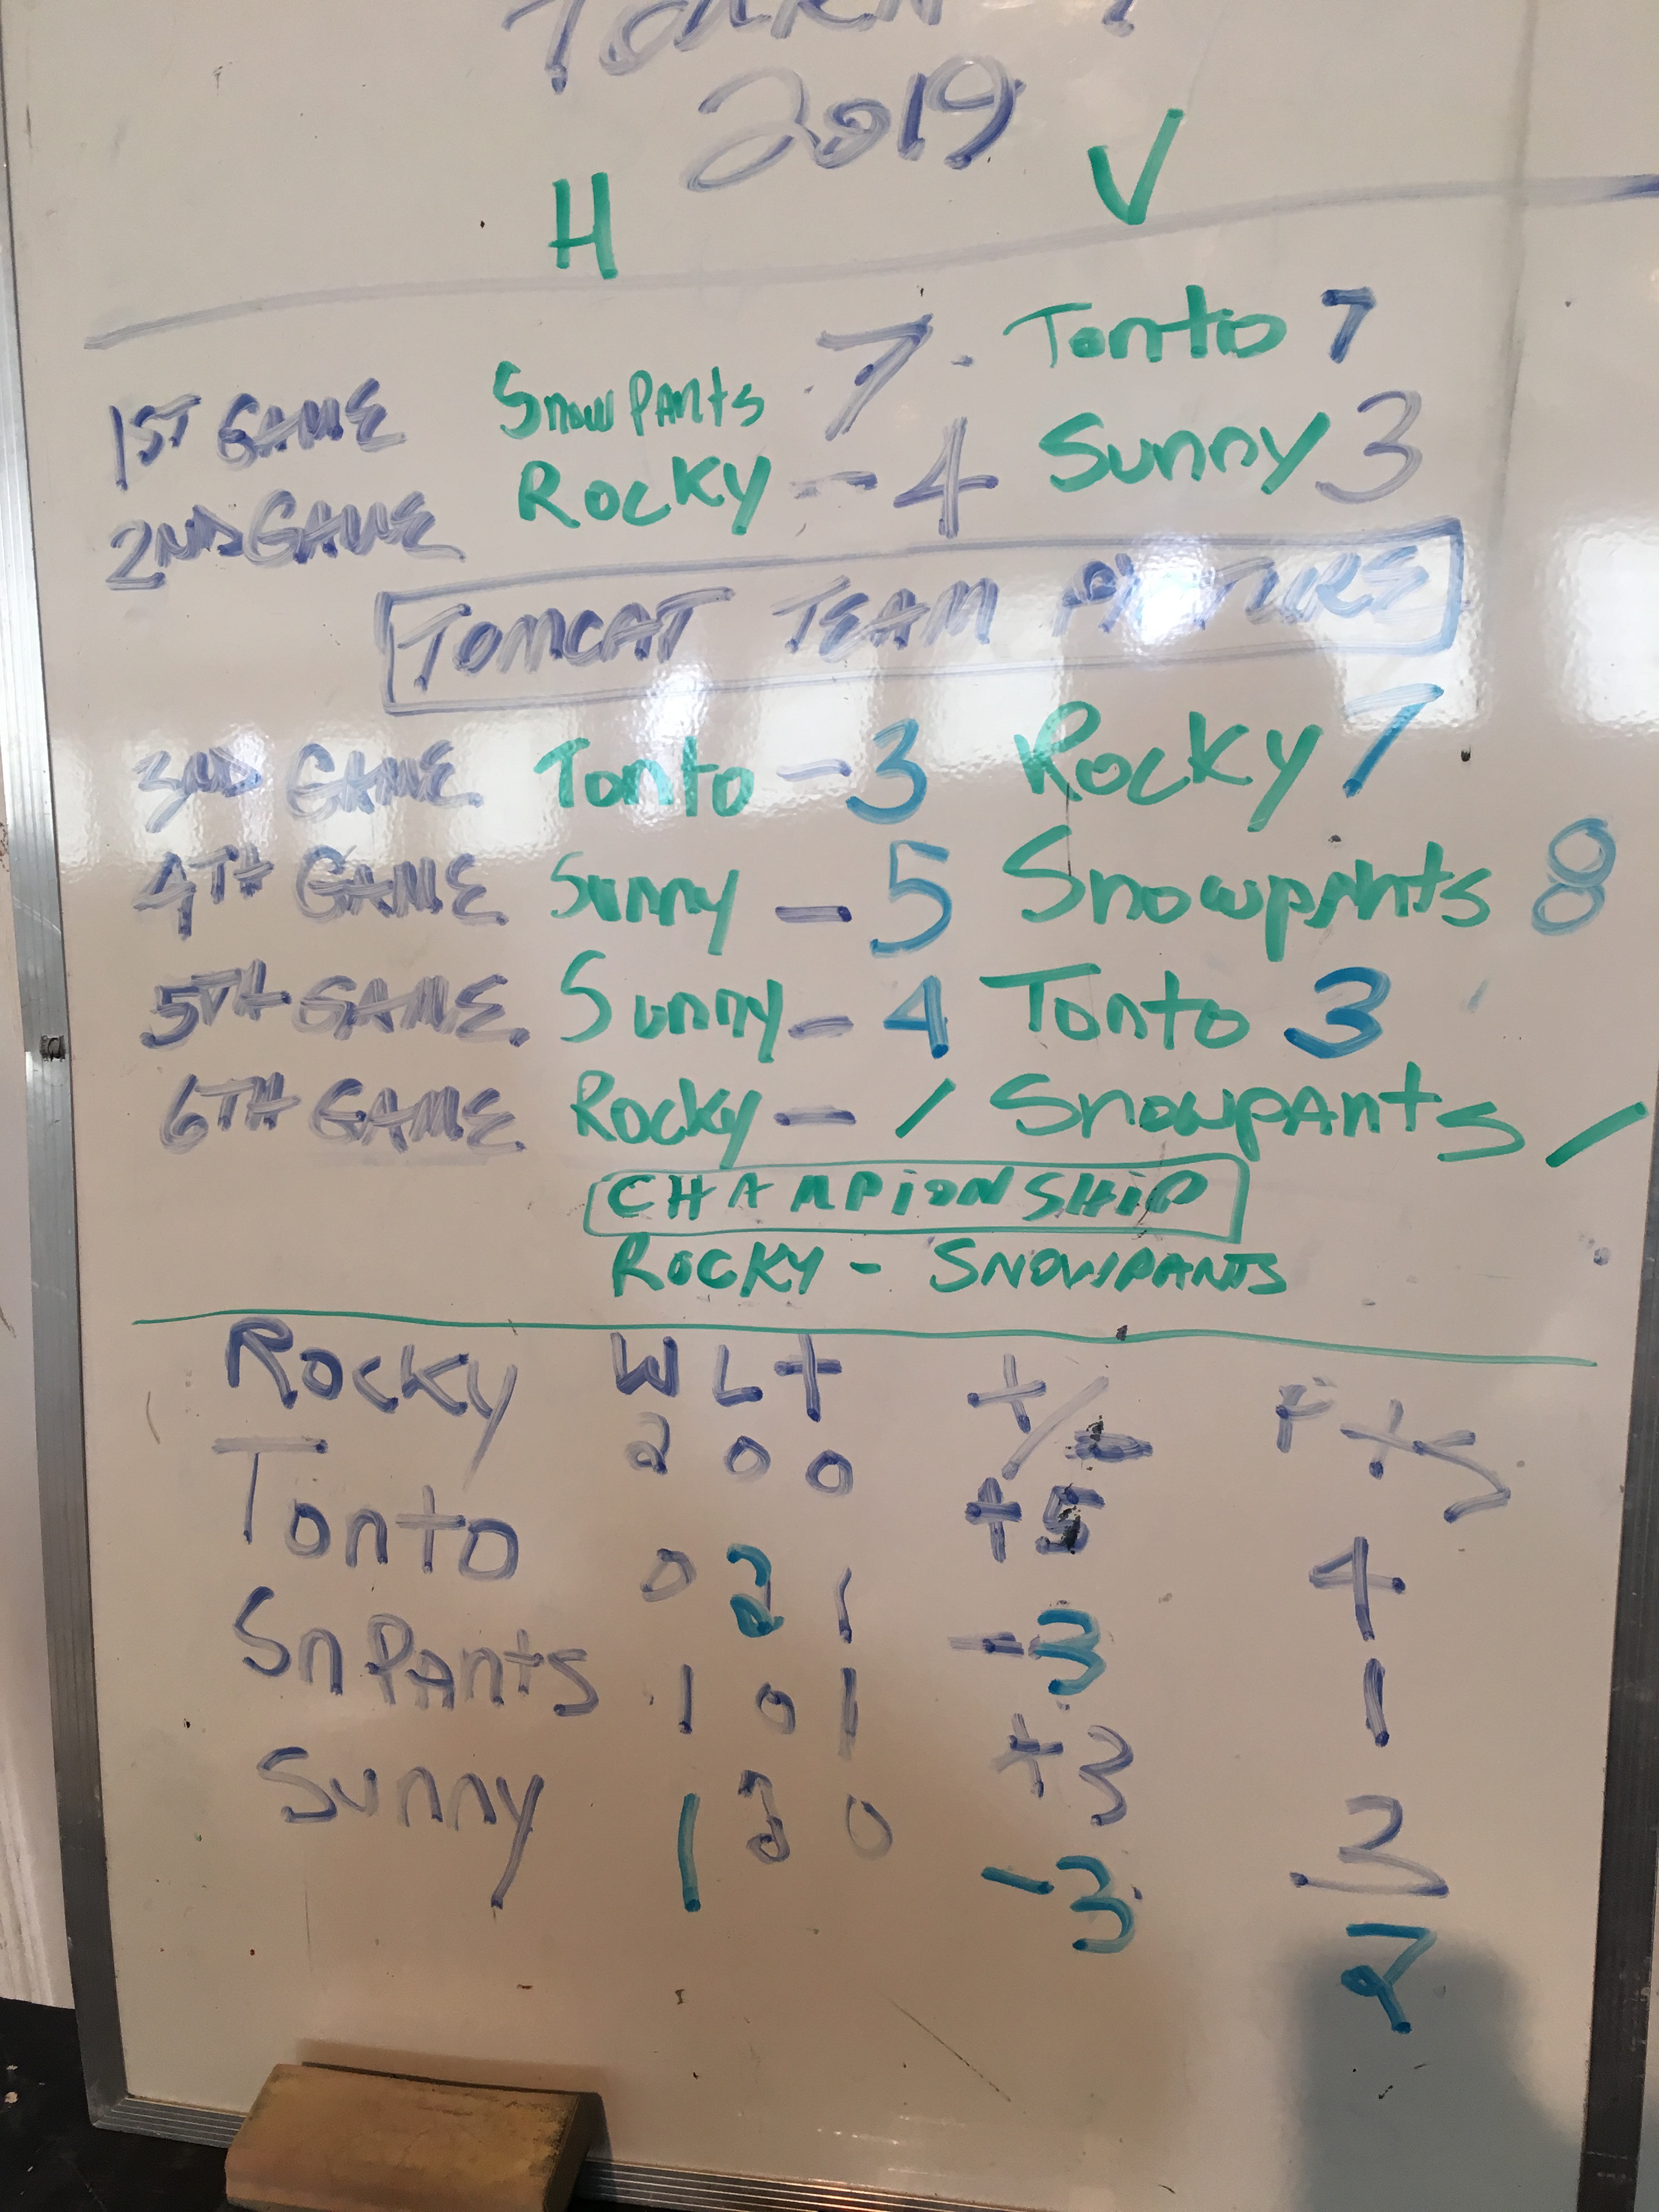 2019
H V
1ST GAME SnowPants 7 - Tonto 7
2ND GAME ROCKY - 4 Sunny 3
TOMCAT TEAM PICTURE
3RD GAME Tonto - 3 ROCKY 7
4TH GAME Sunny - 5 Snowpants 8
5TH GAME Sunny - 4 Tonto 3
6TH GAME Rocky - / Snowpants /
CHAMPIONSHIP
ROCKY - SNOWPANTS
Rocky W L t +/- Pts
2 0 0 +5 4
Tonto 0 2 1 -3 1
SnPants 1 0 1 +3 3
Sunny 1 2 0 -3 2